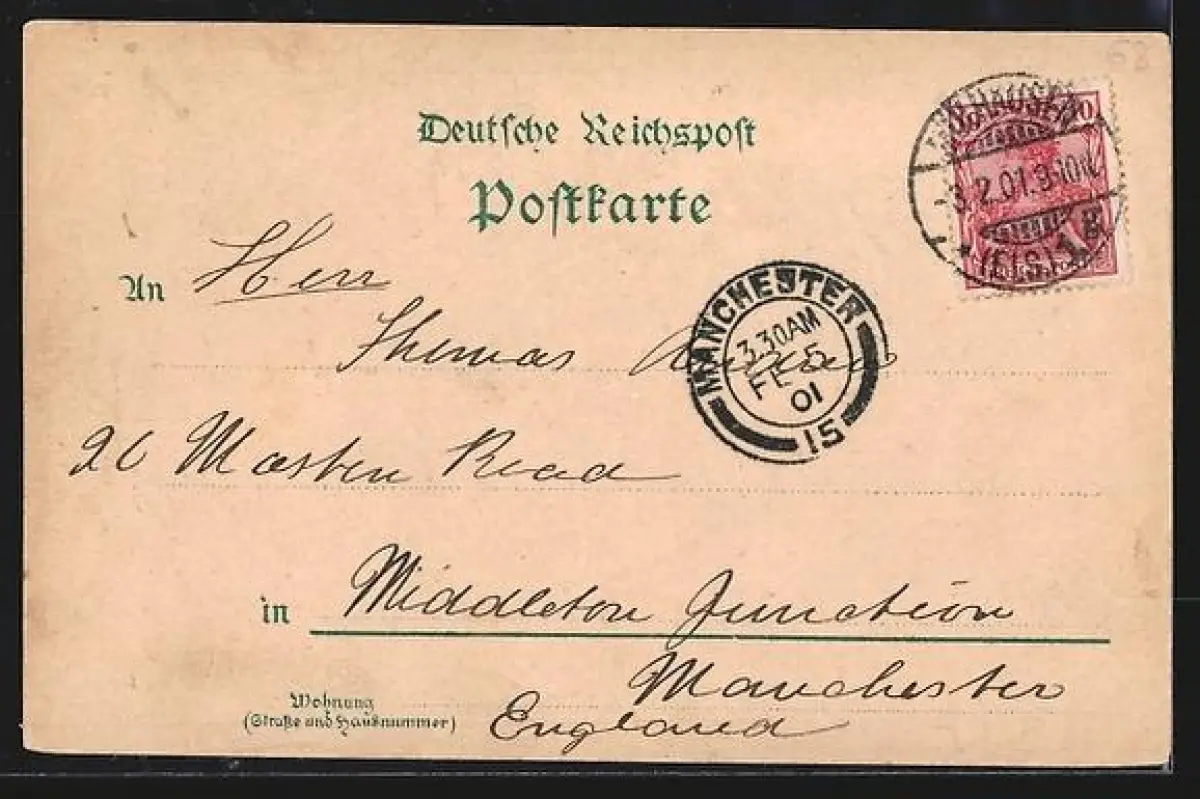 68
Deutsche Reichspost
Postkarte
MÜLHAUSEN
3.2.01.9-10V.
* (ELS) 1 g
10
An Herr
Thomas
MANCHESTER
3.30AM
FE 5
01
15
26 Marsten Road
in Middleton Junction
Manchester
Wohnung
(Straße und Hausnummer)
England